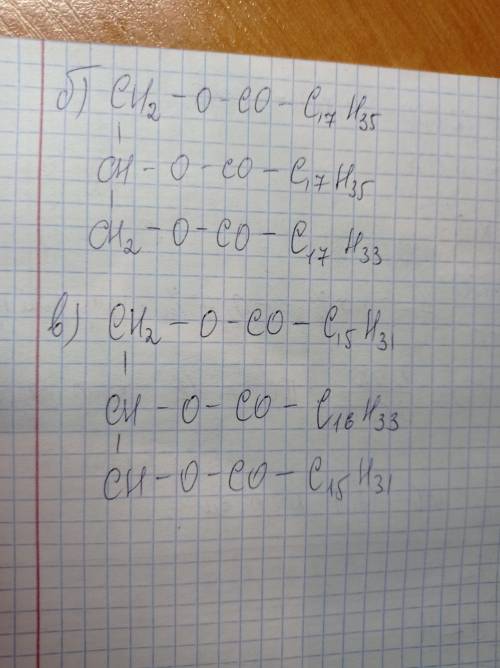 б) CH₂ - O - CO - C₁₇H₃₅
|
CH - O - CO - C₁₇H₃₅
|
CH₂ - O - CO - C₁₇H₃₃
в) CH₂ - O - CO - C₁₅H₃₁
|
CH - O - CO - C₁₆H₃₃
|
CH - O - CO - C₁₅H₃₁